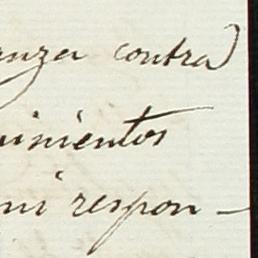 anza contra
uinientos
mi respon-